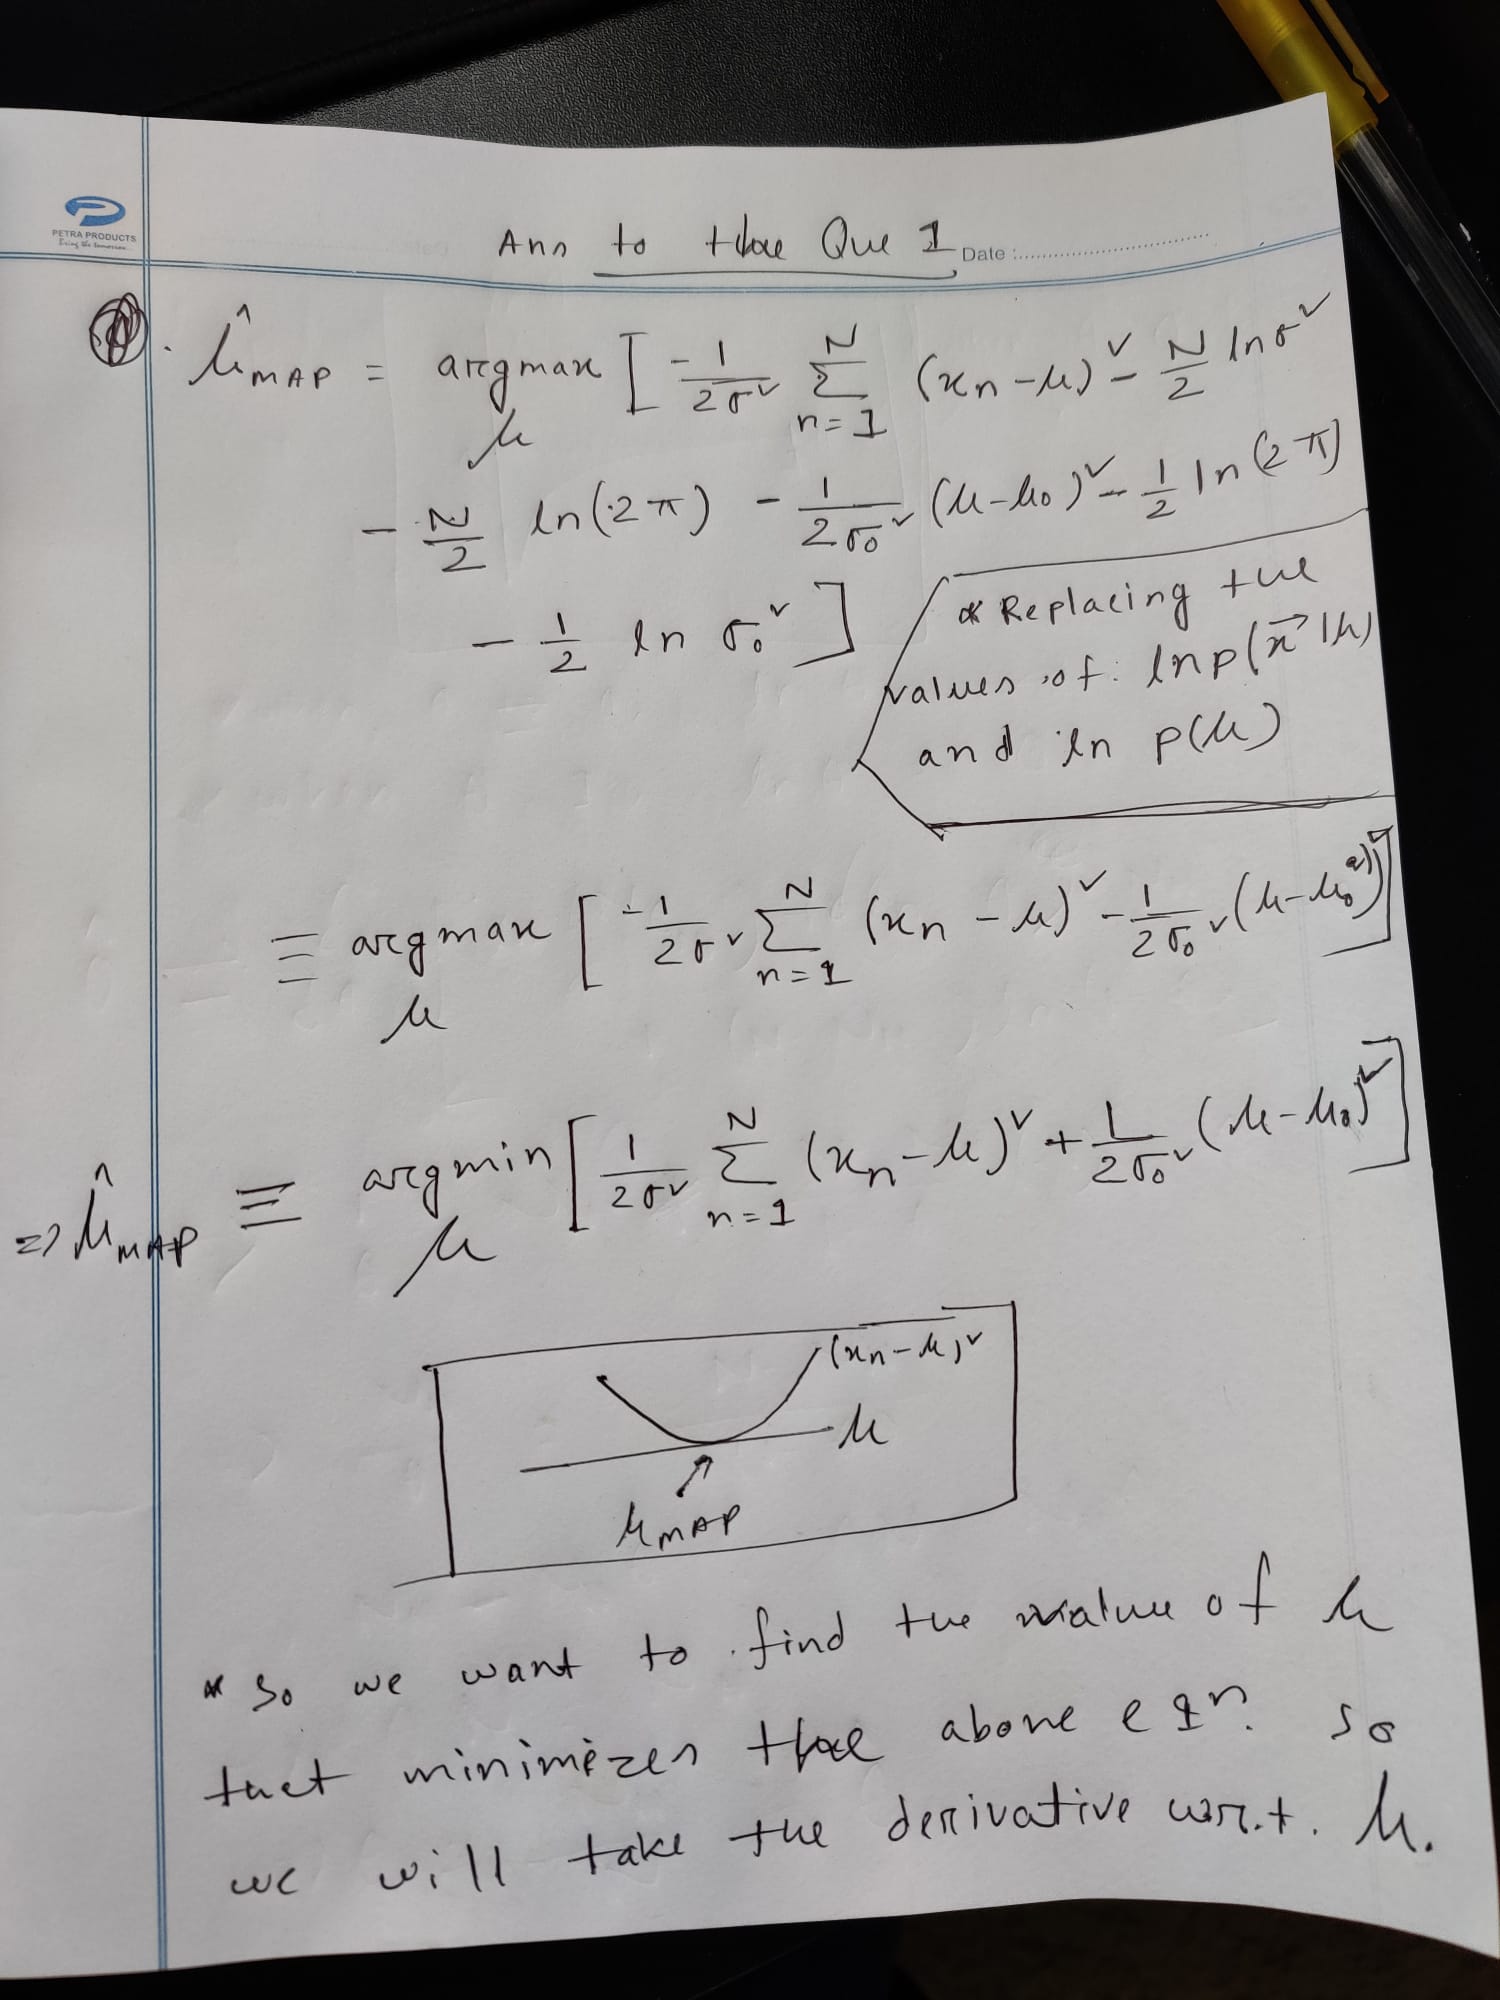 PETRA PRODUCTS
Ans to the Que 1 Date :
μ̂_MAP = argmax_μ [ -1/2σ² Σ_{n=1}^{N} (x_n - μ)² - N/2 ln σ²
- N/2 ln(2π) - 1/2σ₀² (μ - μ₀)² - 1/2 ln(2π)
- 1/2 ln σ₀² ]
* Replacing the
values of ln p(x⃗|μ)
and ln p(μ)
≡ argmax_μ [ -1/2σ² Σ_{n=1}^{N} (x_n - μ)² - 1/2σ₀² (μ - μ₀)² ]
=> μ̂_MAP ≡ argmin_μ [ 1/2σ² Σ_{n=1}^{N} (x_n - μ)² + 1/2σ₀² (μ - μ₀)² ]
(x_n - μ)²
μ
μ_MAP
* So we want to find the value of μ
that minimizes the above eqn. so
we will take the derivative w.r.t. μ.